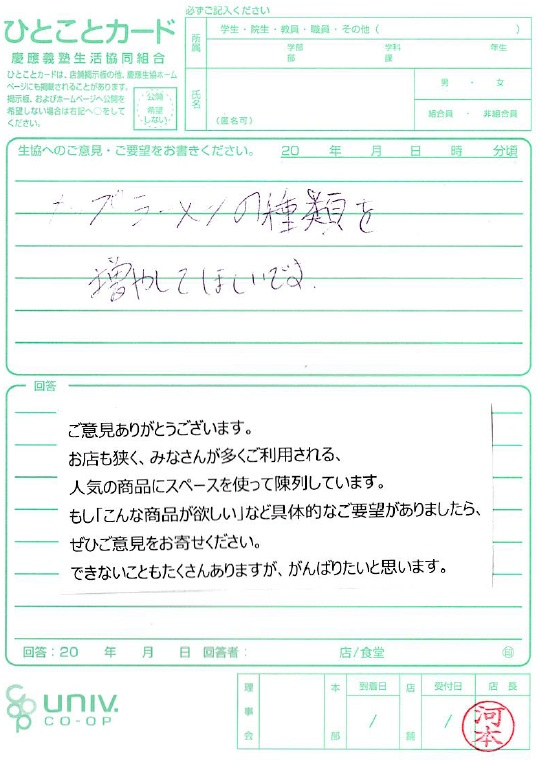 ひとことカード
慶應義塾生活協同組合
ひとことカードは、店舗掲示板の他、慶應生協ホーム
ページにも掲載されることがあります。
掲示板、およびホームページへ公開を
希望しない場合は右記へ○をして
ください。
公開
希望
しない
必ずご記入ください
所属
学生・院生・教員・職員・その他（ ）
学部 学科 年生
部 課
氏名
（匿名可）
男 ・ 女
組合員 ・ 非組合員
生協へのご意見・ご要望をお書きください。 20 年 月 日 時 分頃
カップラーメンの種類を
増やしてほしいです.
回答
ご意見ありがとうございます。
お店も狭く、みなさんが多くご利用される、
人気の商品にスペースを使って陳列しています。
もし「こんな商品が欲しい」など具体的なご要望がありましたら、
ぜひご意見をお寄せください。
できないこともたくさんありますが、がんばりたいと思います。
回答：20 年 月 日 回答者： 店/食堂 ㊞
univ.
CO-OP
理事会
本部
到着日
/
店舗
受付日
/
店長
河本